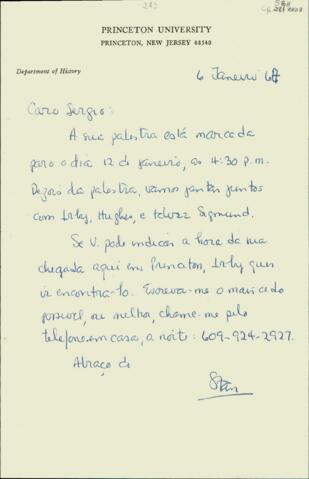 283
PRINCETON UNIVERSITY
PRINCETON, NEW JERSEY 08540
Department of History
6 Janeiro 68
Caro Sergio:
A sua palestra está marcada
para o dia 12 de janeiro, as 4:30 p.m.
Depois da palestra, vamos jantar juntos
com Irby, Hughes, e talvez Sigmund.
Se V. pode indicar a hora da sua
chegada aqui em Princeton, Irby quer
ir encontra-lo. Escreva-me o mais cedo
possivel, ou melhor, chame-me pelo
telefone em casa, a noite: 609-924-2927.
Abraço do
Stan